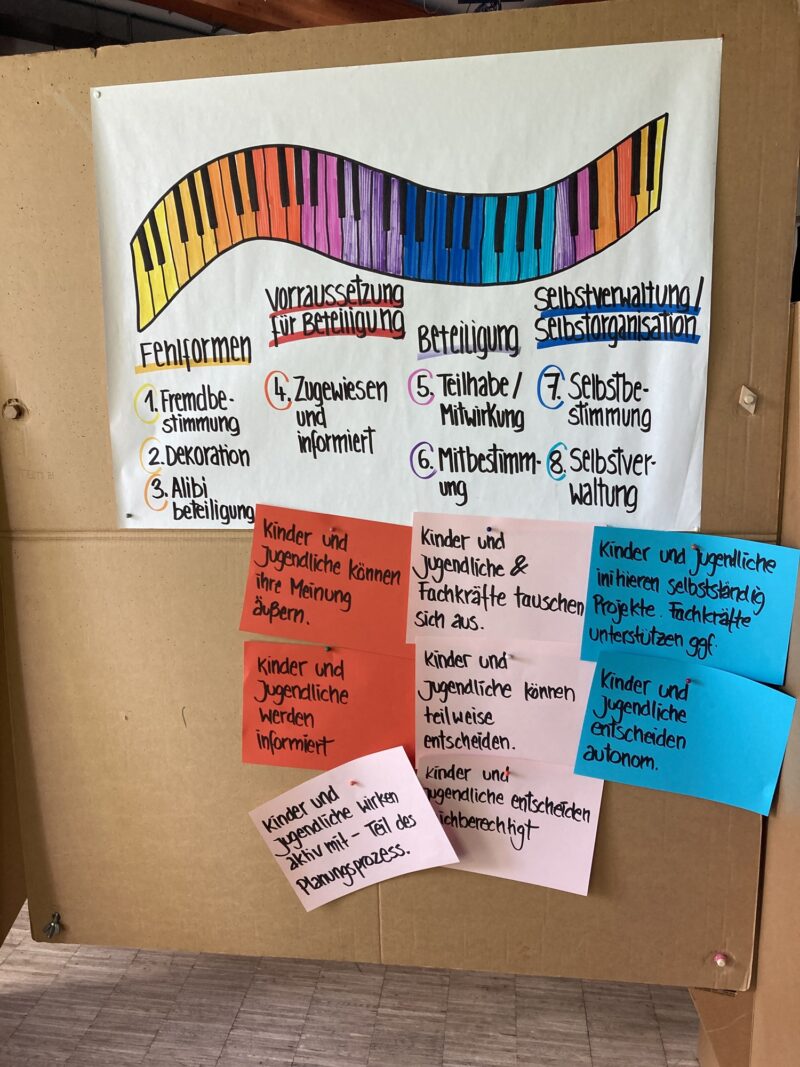 Fehlformen
1. Fremdbe-
stimmung
2. Dekoration
3. Alibi
beteiligung
Vorraussetzung
für Beteiligung
4. Zugewiesen
und
informiert
Beteiligung
5. Teilhabe/
Mitwirkung
6. Mitbestimm-
ung
Selbstverwaltung/
Selbstorganisation
7. Selbstbe-
stimmung
8. Selbstver-
waltung
Kinder und
Jugendliche können
ihre Meinung
äußern.
Kinder und
Jugendliche
werden
informiert
Kinder und
Jugendliche &
Fachkräfte tauschen
sich aus.
Kinder und
Jugendliche können
teilweise
entscheiden.
Kinder und
Jugendliche wirken
aktiv mit - Teil des
Planungsprozess.
Kinder und
Jugendliche entscheiden
ichberechtigt
Kinder und Jugendliche
initiieren selbstständig
Projekte. Fachkräfte
unterstützen ggf.
Kinder und
Jugendliche
entscheiden
autonom.